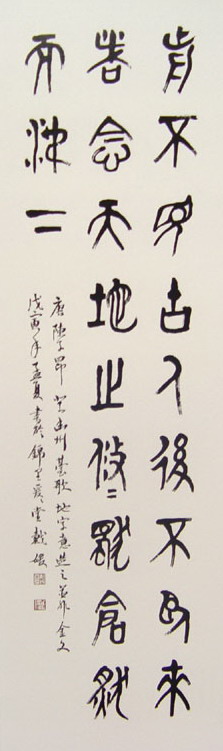 前不見古人後不見來
者念天地之攸〻獨倉然
而涕下
唐陳子昂登幽州臺歌地字意造之金文
戊寅年孟夏書於錦里堂戴